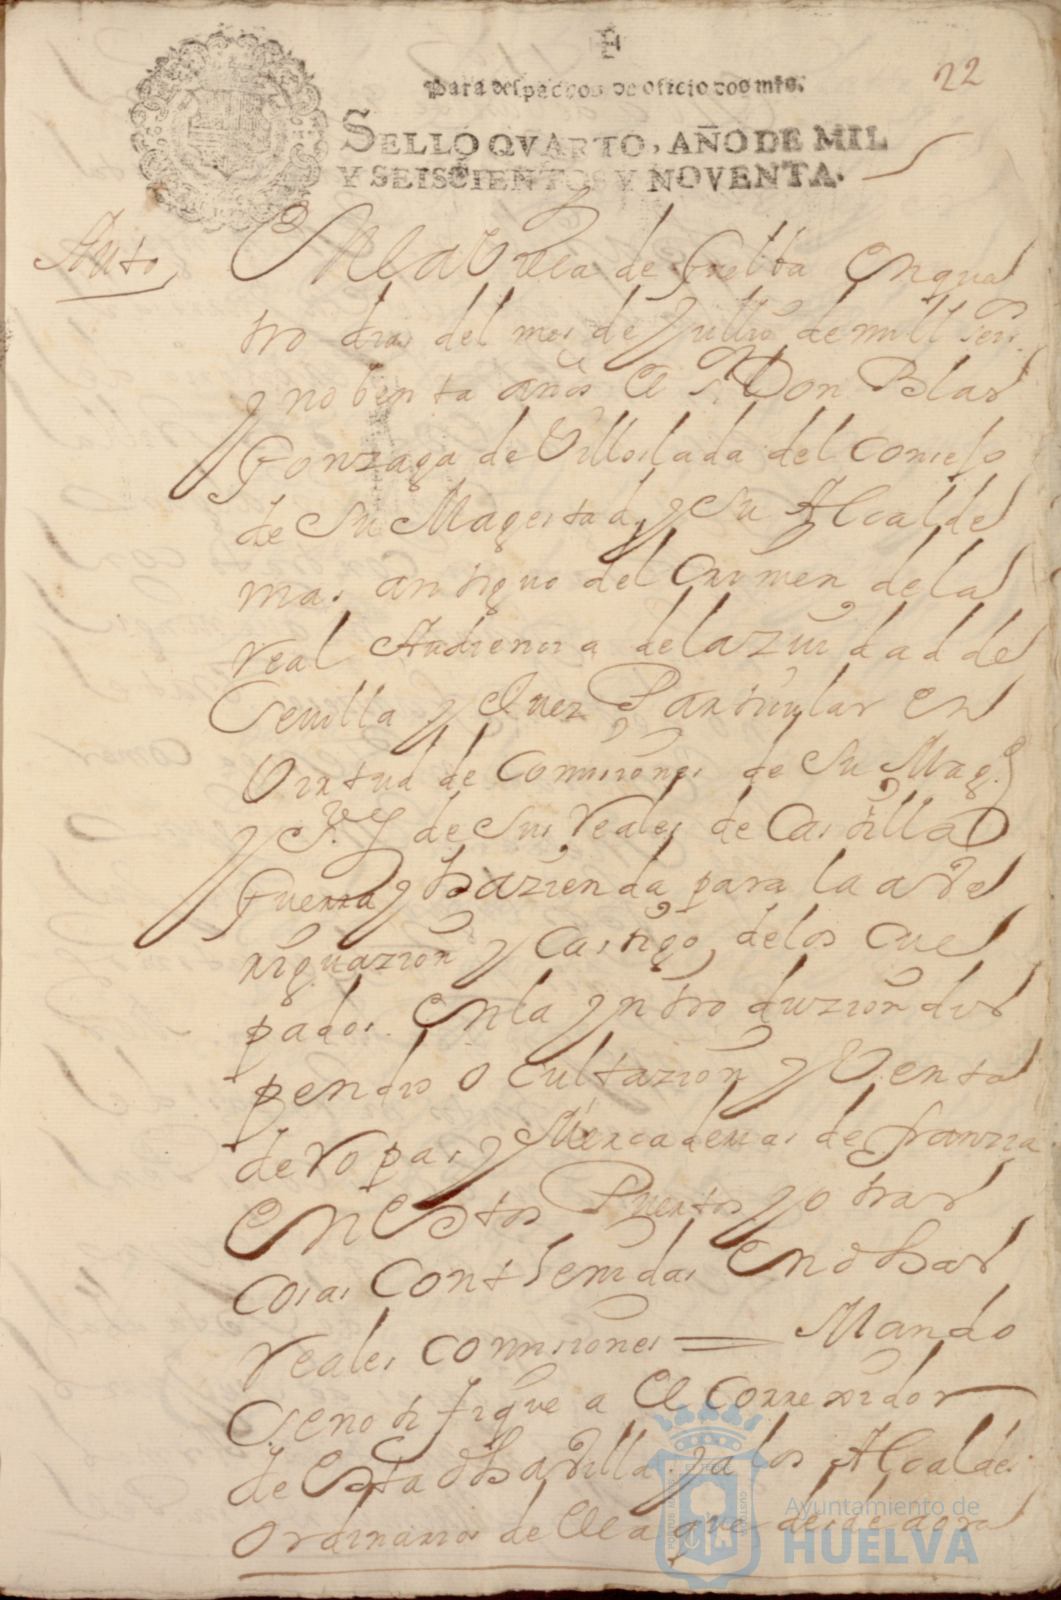 22
Para despachos de oficio dos mrs.
SELLO QVARTO, AÑO DE MIL
Y SEISCIENTOS Y NOVENTA.
Auto
En la Villa de Guelba En qua
tro dias del mes de Jullio de mill seisº
y nobenta años El Sr Don Blas
Gonzaga de Villoslada del Consejo
de Su Magestad, y Su Alcalde
mas antiguo del Crimen de la
real Audiencia de la ziudad de
Sevilla y Juez Particular en
Virtud de Comisiones de Su Magd
y de Sus reales de Castilla
Guerra y hazienda para la abe
riguazion y Castigo, de los Cul
pados En la yntroduzion dis
pendio ocultazion y Venta
de ropas y Mercaderias de francia
En Estos Puertos y otras
cosas Contenidas En dhas
reales comisiones = Mando
Se notifique a El Correxidor
de Esta dha Villa y a los Alcaldes
Ordinarios de Ella que desde aora
Ayuntamiento de
HUELVA